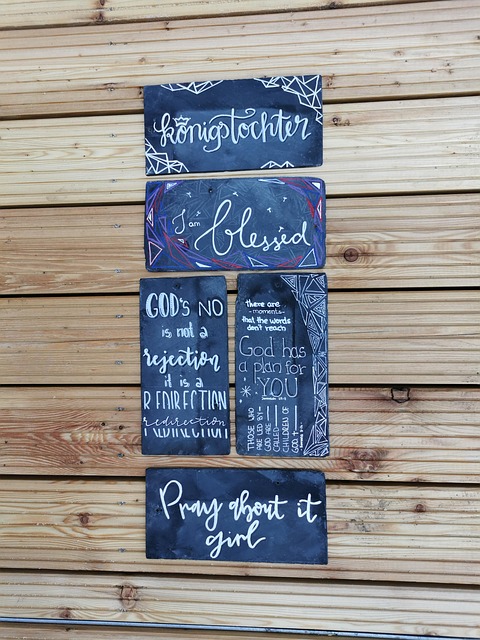 königstochter
I am blessed
GOD's NO
is not a
rejection
it is a
REDIRECTION
redirection
REDIRECTION
there are
-moments-
that the words
don't reach
God has
a plan for
YOU
THOSE WHO
ARE LED BY
GOD ARE
CALLED
CHILDREN OF
GOD
Pray about it
girl